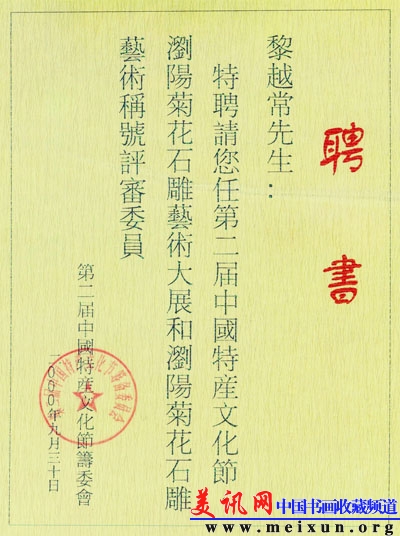 聘書
黎越常先生：
特聘請您任第二届中國特産文化節
瀏陽菊花石雕藝術大展和瀏陽菊花石雕
藝術稱號評審委員
第二届中國特産文化節籌委會
二〇〇〇年九月三十日
美讯网 中国书画收藏频道
www.meixun.org